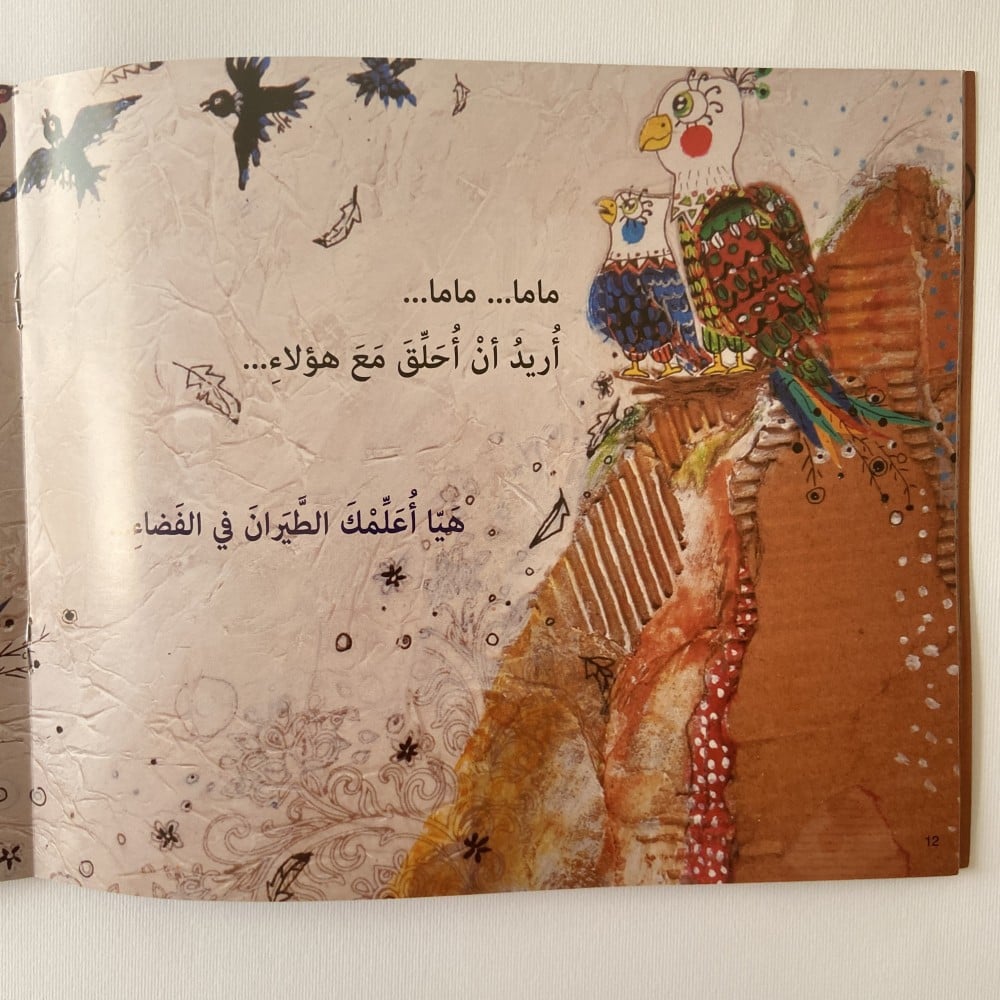 ماما... ماما...
أُريدُ أنْ أُحَلِّقَ مَعَ هؤلاءِ...
هَيّا أُعَلِّمْكَ الطَّيَرانَ في الفَضاءِ
12